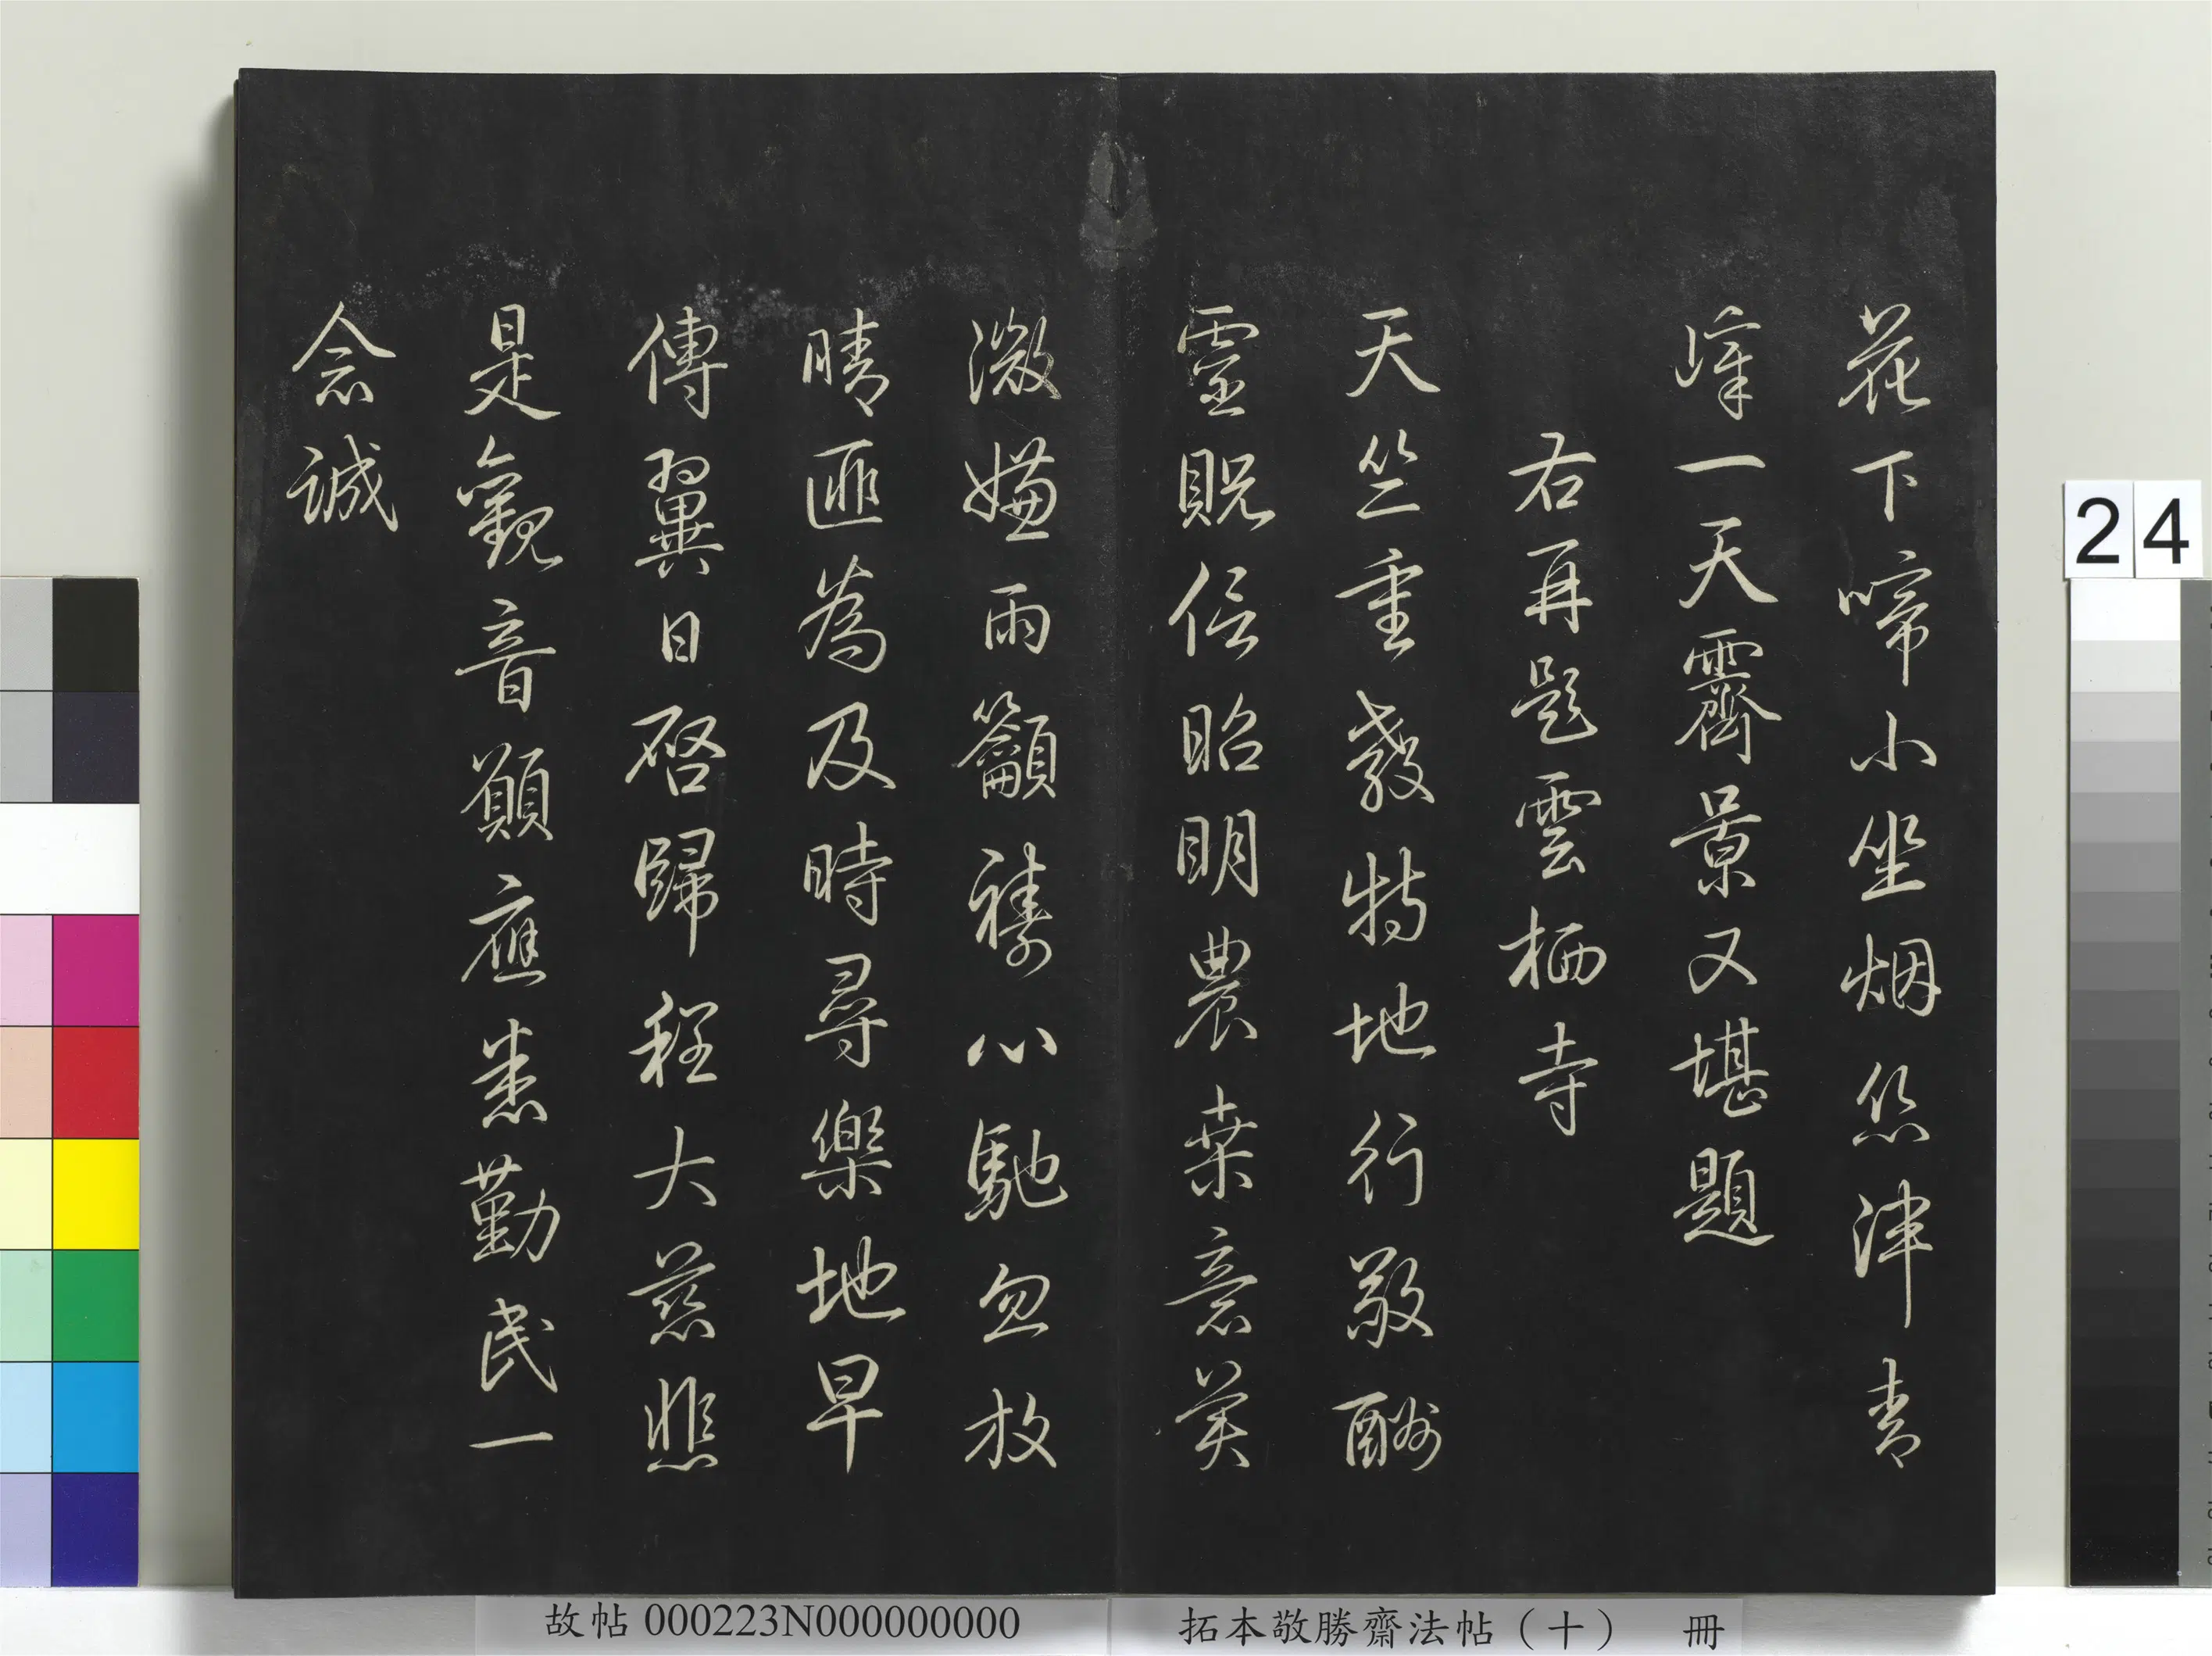 花下啼小坐烟岚津青
嶂一天霽景又堪題
右再題雲栖寺
天竺重教特地行敬酬
靈貺倍昭明農桒意美
激嫌雨籲禱心馳忽放
晴匪為及時尋樂地早
傳翼日啓歸程大慈悲
是觀音願應悉勤民一
念誠
24
故帖 000223N000000000
拓本敬勝齋法帖（十） 冊